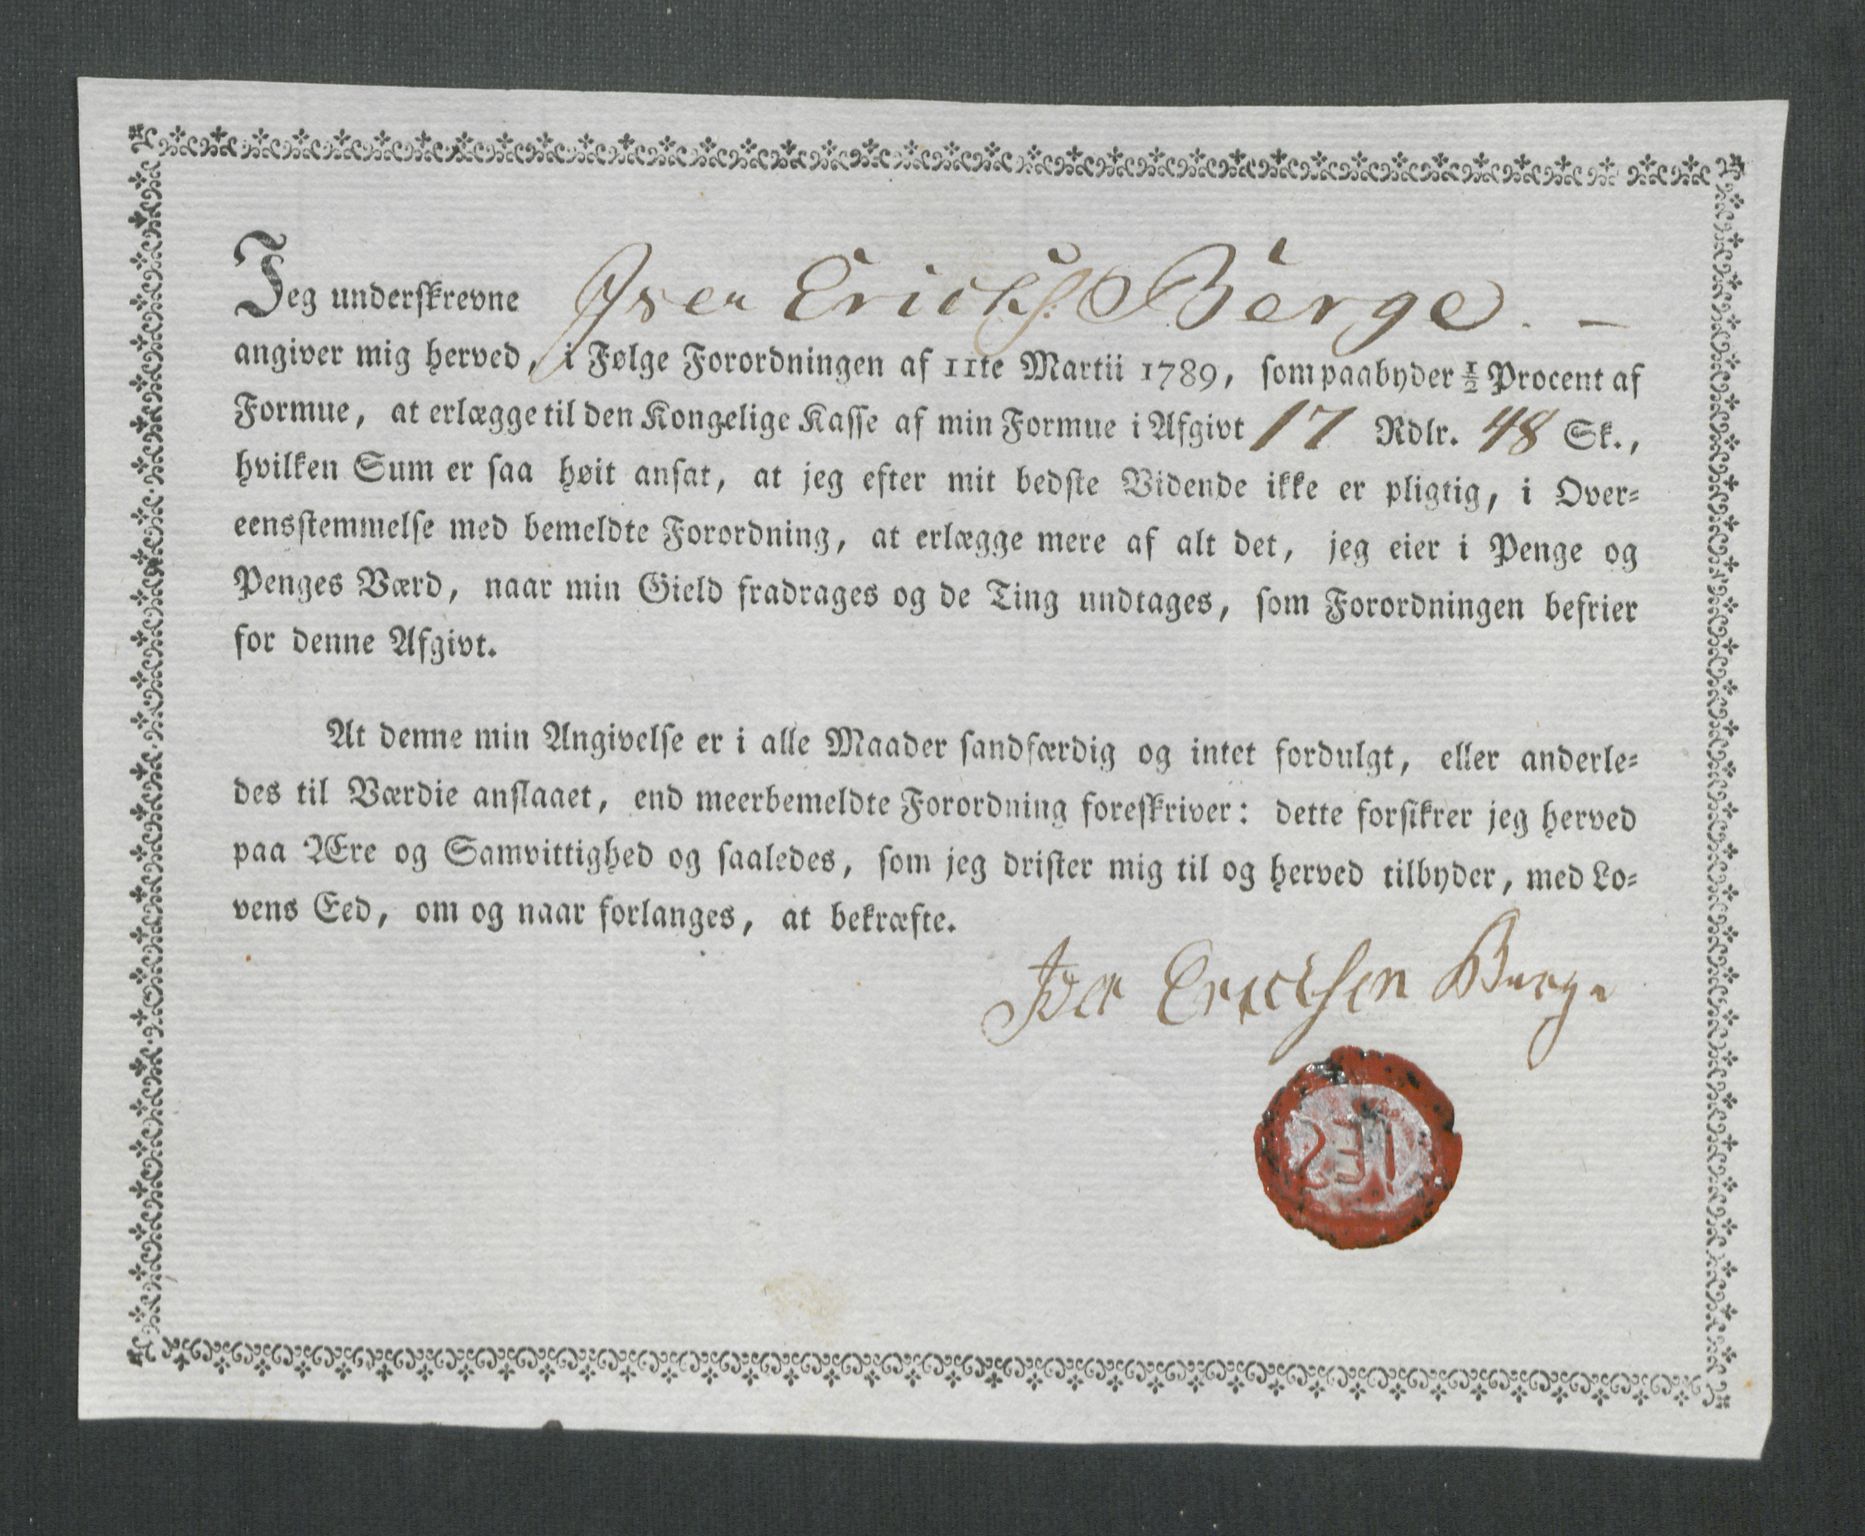 Jeg underskrevne Iver Ericks. Berge. –
angiver mig herved, i Følge Forordningen af 11te Martii 1789, som paabyder ½ Procent af
Formue, at erlægge til den Kongelige Kasse af min Formue i Afgivt 17 Rdlr. 48 Sk.,
hvilken Sum er saa høit ansat, at jeg efter mit bedste Vidende ikke er pligtig, i Over-
eensstemmelse med bemeldte Forordning, at erlægge mere af alt det, jeg eier i Penge og
Penges Værd, naar min Gield fradrages og de Ting undtages, som Forordningen befrier
for denne Afgivt.
At denne min Angivelse er i alle Maader sandfærdig og intet fordulgt, eller anderle-
des til Værdie anslaaet, end meerbemeldte Forordning foreskriver: dette forsikrer jeg herved
paa Ære og Samvittighed og saaledes, som jeg drister mig til og herved tilbyder, med Lo-
vens Eed, om og naar forlanges, at bekræfte.
Iver Ericksen Berge
IES